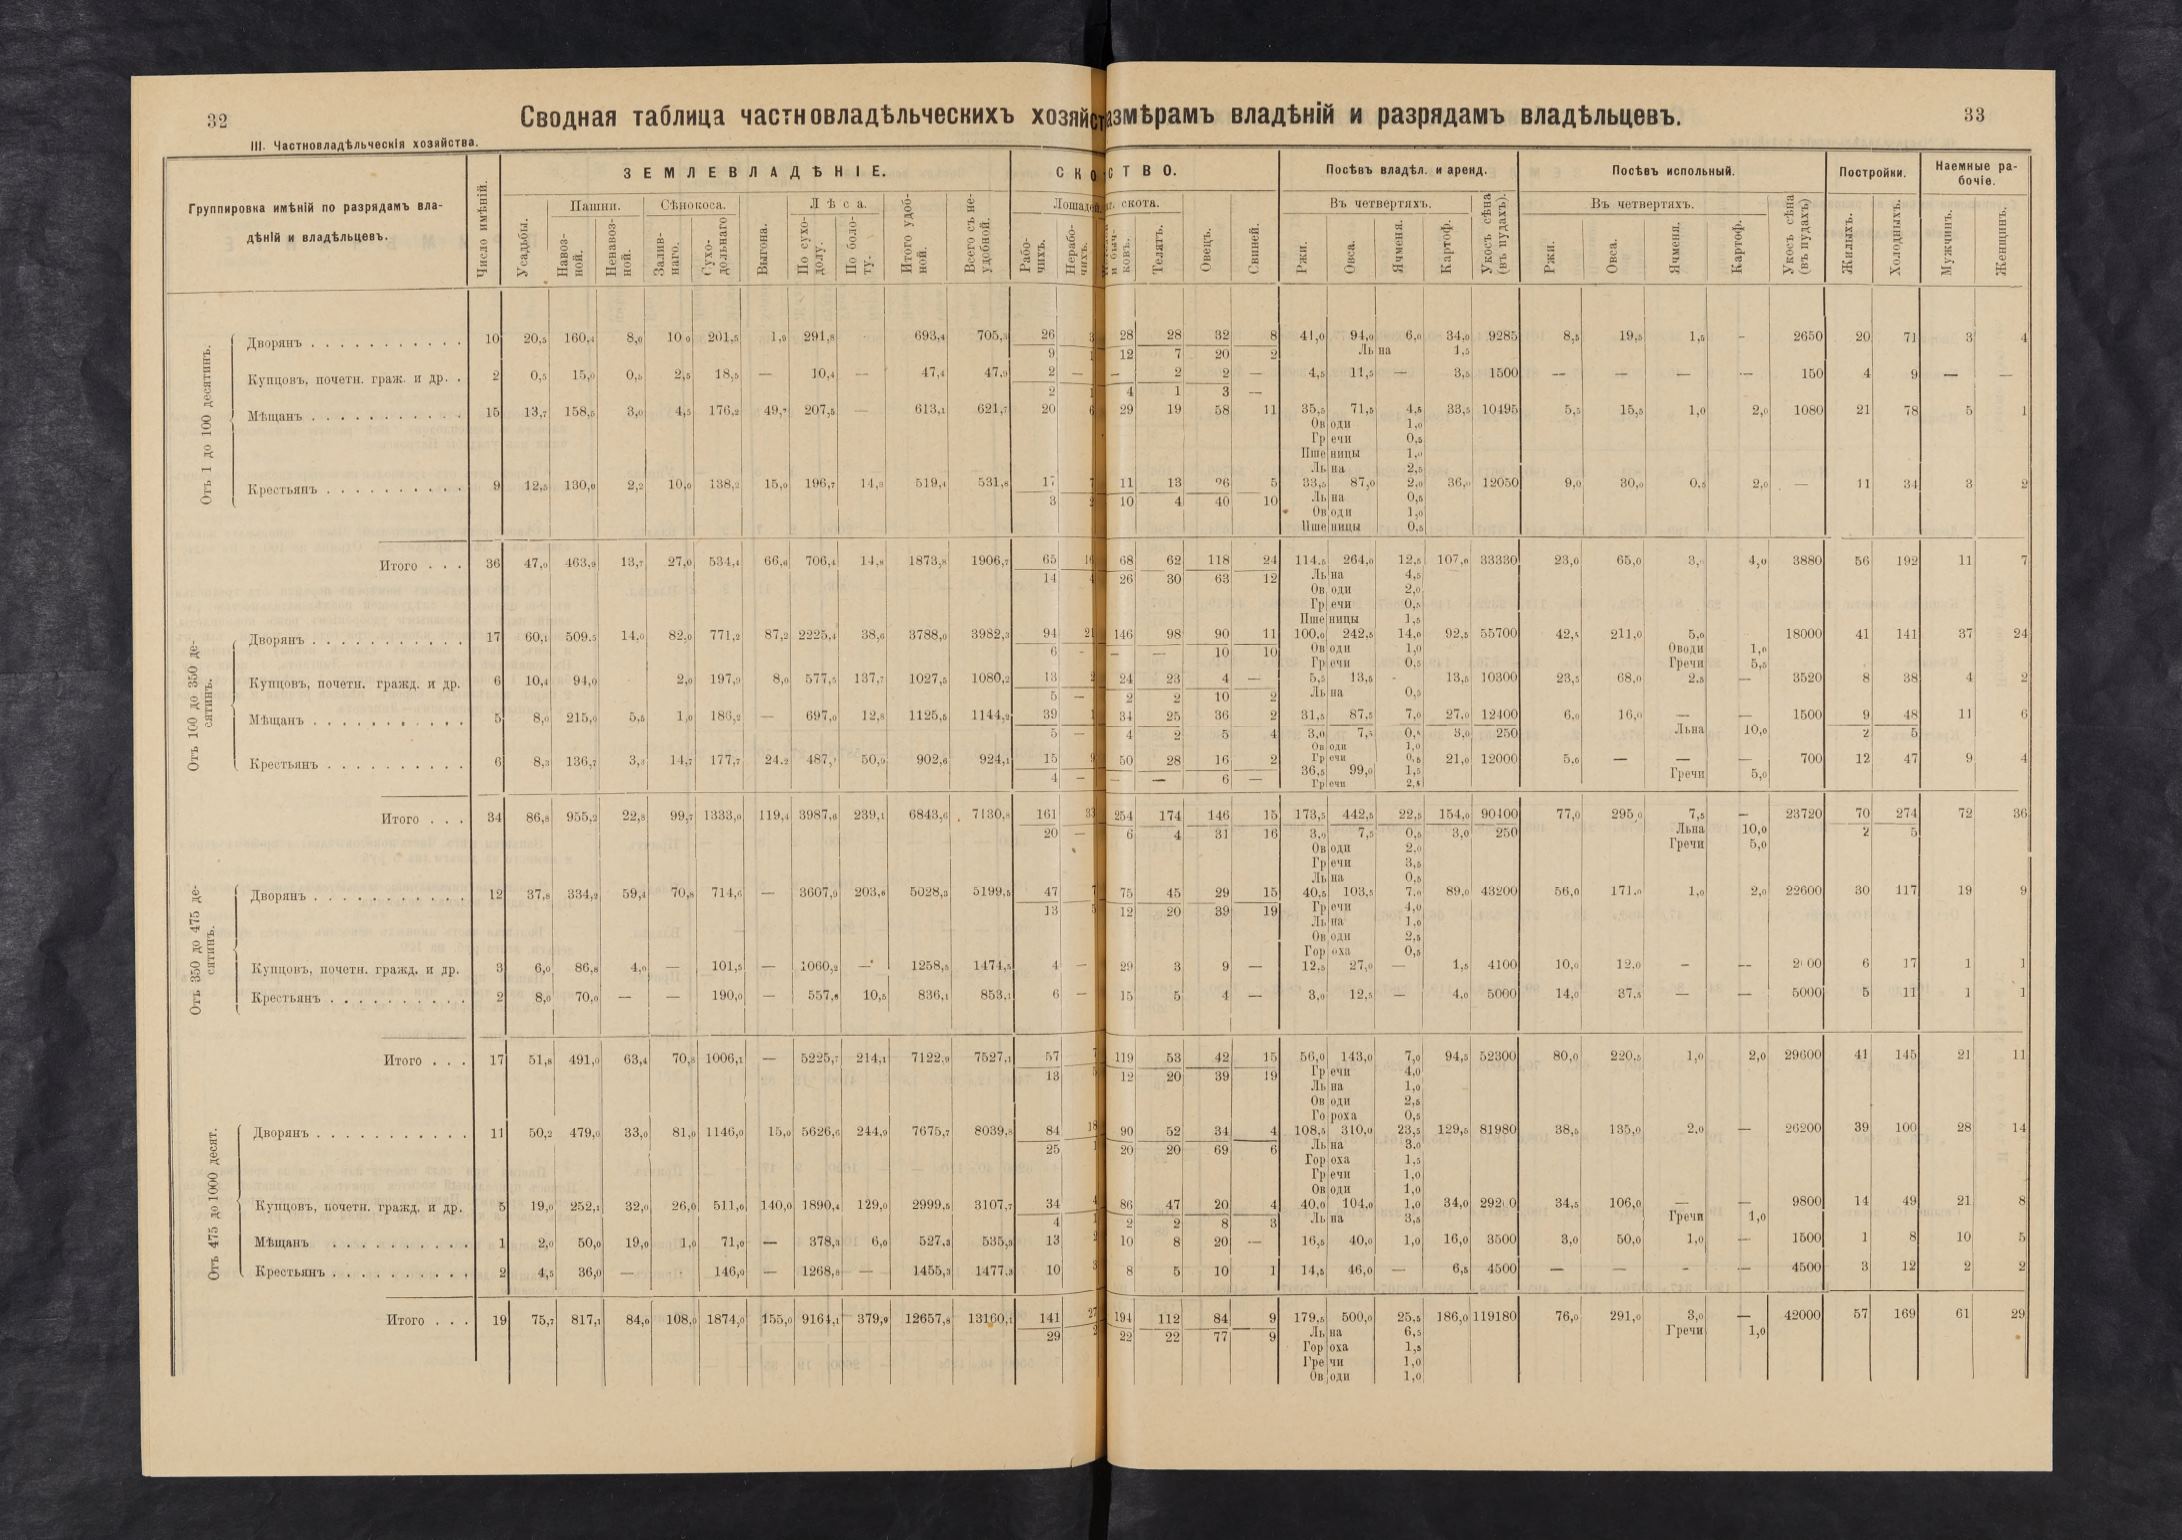 32
Сводная таблица частновладѣльческихъ хозяйст
азмѣрамъ владѣній и разрядамъ владѣльцевъ.
33
III. Частновладѣльческія хозяйства.
Группировка имѣній по разрядамъ вла-
дѣній и владѣльцевъ.
Число имѣній.
ЗЕМЛЕВЛАДѢНІЕ.
Усадьбы.
Пашни.
Навоз-
ной.
Ненавоз-
ной.
Сѣнокоса.
Залив-
наго.
Сухо-
дольнаго
Выгона.
Лѣса.
По сухо-
долу.
По боло-
ту.
Итого удоб-
ной.
Всего съ не-
удобной.
СКО
СТВО.
Лошадей
Рабо-
чихъ.
Нерабо-
чихъ.
г. скота.
и быч-
ковъ.
Телятъ.
Овецъ.
Свиней.
Посѣвъ владѣл. и аренд.
Въ четвертяхъ.
Ржи.
Овса.
Ячменя.
Картоф.
Укосъ сѣна
(въ пудахъ).
Посѣвъ испольный.
Въ четвертяхъ.
Ржи.
Овса.
Ячменя.
Картоф.
Укосъ сѣна
(въ пудахъ)
Постройки.
Жилыхъ.
Холодныхъ.
Наемные ра-
бочіе.
Мужчинъ.
Женщинъ.
Отъ 1 до 100 десятинъ.
Дворянъ . . . 10 20,5 160,4 8,0 10 0 201,5 1,9 291,8 693,4 705,3 26 3 28 28 32 8 41,0 94,0 6,0 34,0 9285 8,5 19,5 1,5 – 2650 20 71 3 4
9 1 12 7 20 2 Льна 1,5
Купцовъ, почетн. граж. и др. . 2 0,5 15,0 0,5 2,5 18,5 — 10,4 — 47,4 47,9 2 — — 2 2 — 4,5 11,5 — 3,5 1500 — — — — 150 4 9 — —
2 1 4 1 3 —
Мѣщанъ . . . 15 13,7 158,5 3,0 4,5 176,2 49,7 207,5 — 613,1 621,7 20 6 29 19 58 11 35,5 71,5 4,5 33,5 10495 5,5 15,5 1,0 2,0 1080 21 78 5 1
Оводи 1,0
Гречи 0,5
Пшеницы 1,0
Льна 2,5
Крестьянъ . . . 9 12,5 130,0 2,2 10,0 138,2 15,0 196,7 14,8 519,4 531,8 17 7 11 13 26 5 33,5 87,0 2,0 36,0 12050 9,0 30,0 0,5 2,0 — 11 34 3 2
3 2 10 4 40 10 Льна 0,5
Оводи 1,0
Пшеницы 0,5
Итого . . . 36 47,0 463,9 13,7 27,0 534,4 66,6 706,4 14,8 1873,8 1906,7 65 16 68 62 118 24 114,5 264,0 12,5 107,0 33330 23,0 65,0 3, 4,0 3880 56 192 11 7
14 4 26 30 63 12 Льна 4,5
Оводи 2,0
Гречи 0,5
Пшеницы 1,5
Отъ 100 до 350 де-
сятинъ.
Дворянъ . . . 17 60,1 509,5 14,0 82,0 771,2 87,2 2225,4 38,6 3788,0 3982,3 94 21 146 98 90 11 100,0 242,5 14,0 92,5 55700 42,5 211,0 5,0 18000 41 141 37 24
6 - — — 10 10 Оводи 1,0 Оводи 1,0
Гречи 0,5 Гречи 5,5
Купцовъ, почетн. гражд. и др. 6 10,4 94,0 2,0 197,9 8,0 577,5 137,7 1027,5 1080,2 13 2 24 23 4 — 5,5 13,5 - 13,5 10300 23,5 68,0 2,5 — 3520 8 38 4 2
5 — 2 2 10 2 Льна 0,5
Мѣщанъ . . . 5 8,0 215,0 5,5 1,0 186,2 — 697,0 12,8 1125,5 1144,2 39 1 34 25 36 2 31,5 87,5 7,0 27,0 12400 6,0 16,0 — — 1500 9 48 11 6
5 — 4 2 5 4 3,0 7,5 0,5 3,0 250 Льна 10,0 2 5
Оводи 1,0
Гречи 0,5
Крестьянъ . . . 6 8,3 136,7 3,3 14,7 177,7 24,2 487, 50,9 902,6 924,1 15 9 50 28 16 2 36,5 99,0 1,5 21,0 12000 5,0 — — 700 12 47 9 4
4 — — — 6 — Гречи 2,5 Гречи 5,0
Итого . . . 34 86,8 955,2 22,8 99,7 1333,0 119,4 3987,6 239,1 6843,6 7130,8 161 33 254 174 146 15 173,5 442,5 22,5 154,0 90400 77,0 295,0 7,5 — 23720 70 274 72 36
20 — 6 4 31 16 3,0 7,5 0,5 3,0 250 Льна 10,0 2 5
Оводи 2,0 Гречи 5,0
Гречи 3,5
Льна 0,5
Отъ 350 до 475 де-
сятинъ.
Дворянъ . . . 12 37,8 334,2 59,4 70,8 714,6 — 3607,9 203,6 5028,3 5199,5 47 7 75 45 29 15 40,5 103,5 7,0 89,0 43200 56,0 171,0 1,0 2,0 22600 30 117 19 9
13 5 12 20 39 19 Гречи 4,0
Льна 1,0
Оводи 2,5
Гороха 0,5
Купцовъ, почетн. гражд. и др. 3 6,0 86,8 4,0 — 101,5 — 1060,2 — 1258,5 1474,5 4 — 29 3 9 — 12,5 27,0 — 1,5 4100 10,0 12,0 – — 2000 6 17 1 1
Крестьянъ . . . 2 8,0 70,0 — — 190,0 — 557,6 10,5 836,1 853,1 6 — 15 5 4 — 3,0 12,5 — 4,0 5000 14,0 37,5 — — 5000 5 11 1 1
Итого . . . 17 51,8 491,0 63,4 70,8 1006,1 — 5225,7 214,1 7122,9 7527,1 57 7 119 53 42 15 56,0 143,0 7,0 94,5 52300 80,0 220,5 1,0 2,0 29600 41 145 21 11
13 5 12 20 39 19 Гречи 4,0
Льна 1,0
Оводи 2,5
Гороха 0,5
Отъ 475 до 1000 десят.
Дворянъ . . . 11 50,2 479,0 33,0 81,0 1146,0 15,0 5626,6 244,9 7675,7 8039,8 84 18 90 52 34 4 108,5 310,0 23,5 129,5 81980 38,5 135,0 2,0 — 26200 39 100 28 14
25 1 20 20 69 6 Льна 3,0
Гороха 1,5
Гречи 1,0
Оводи 1,0
Купцовъ, почетн. гражд. и др. 5 19,0 252,1 32,0 26,0 511,0 140,0 1890,4 129,0 2999,5 3107,7 34 4 86 47 20 4 40,0 104,0 1,0 34,0 29200 34,5 106,0 — — 9800 14 49 21 8
4 1 2 2 8 3 Льна 3,5 Гречи 1,0
Мѣщанъ . . . 1 2,0 50,0 19,0 1,0 71,0 — 378,3 6,0 527,3 535,9 13 2 10 8 20 — 16,5 40,0 1,0 16,0 3500 3,0 50,0 1,0 — 1500 1 8 10 5
Крестьянъ . . . 2 4,5 36,0 — 146,0 — 1268,8 — 1455,3 1477,3 10 3 8 5 10 1 14,5 46,0 — 6,5 4500 — — - — 4500 3 12 2 2
Итого . . . 19 75,7 817,1 84,0 108,0 1874,0 155,0 9164,1 379,9 12657,8 13160,1 141 27 194 112 84 9 179,5 500,0 25,5 186,0 119180 76,0 291,0 3,0 — 42000 57 169 61 29
29 2 22 22 77 9 Льна 6,5 Гречи 1,0
Гороха 1,5
Гречи 1,0
Оводи 1,0